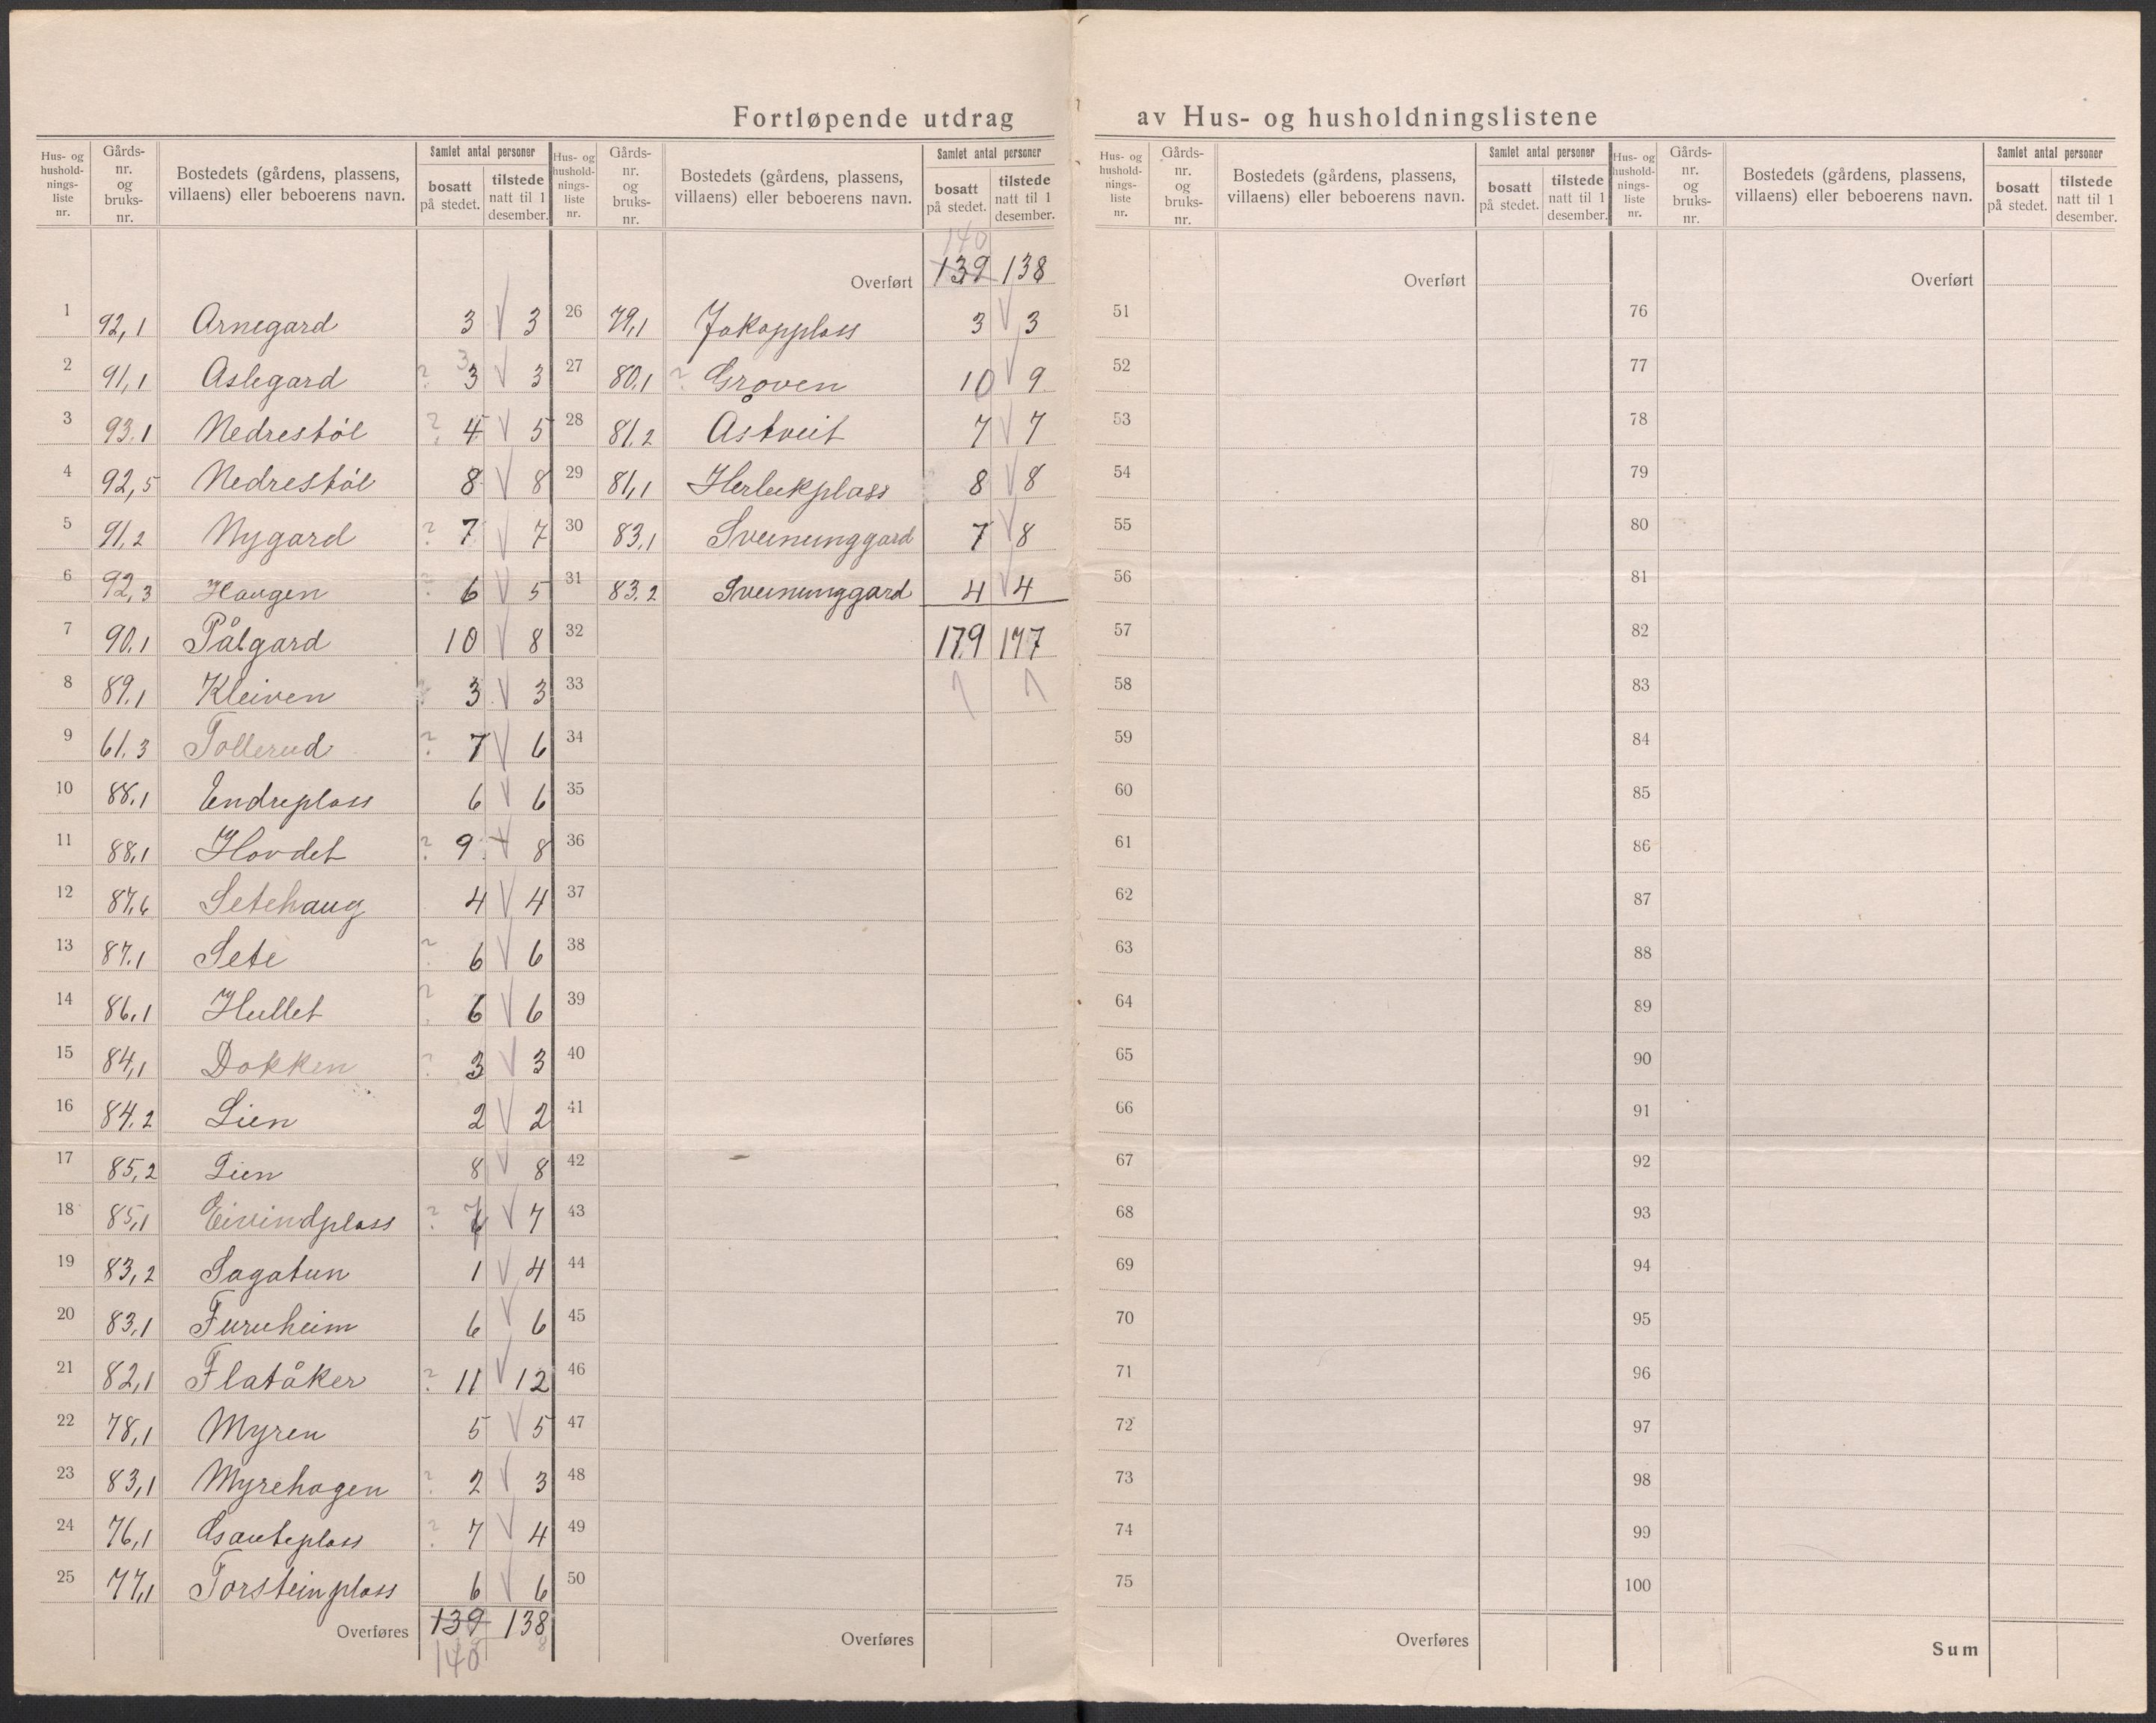 Fortløpende utdrag av Hus- og husholdningslistene
Hus- og hushold-nings-liste nr. | Gårds-nr. og bruks-nr. | Bostedets (gårdens, plassens, villaens) eller beboerens navn. | Samlet antal personer | bosatt på stedet. | tilstede natt til 1 desember.
1 92,1 Arnegard 3 V 3
2 91,1 Aslegard ? 3 3 V 3
3 93.1 Nedrestøl ? 4 V 5
4 92,5 Nedrestøl 8 V 8
5 91,2 Nygard ? 7 V 7
6 92,3 Haugen ? 6 V 5
7 90.1 Pålgard 10 V 8
8 89,1 Kleiven 3 V 3
9 61.3 Tollerud ? 7 V 6
10 88.1 Endreplass 6 V 6
11 88,1 Hovdet ? 9 V 8
12 87,6 Setehaug 4 V 4
13 87.1 Sete ? 6 V 6
14 86,1 Hullet ? 6 V 6
15 84,1 Dokken ? 3 V 3
16 84.2 Lien 2 V 2
17 85,2 Lien 8 V 8
18 85,1 Eivindplass ? 7 V 7
19 83,2 Sagatun 1 V 4
20 83,1 Furuheim 6 V 6
21 82,1 Flatåker ? 11 V 12
22 78,1 Myren 5 V 5
23 83,1 Myrehagen ? 2 V 3
24 76,1 Gauteplass ? 7 V 4
25 77,1 Torsteinplass 6 V 6
Overføres 139 138
140 8
Hus- og hushold-nings-liste nr. | Gårds-nr. og bruks-nr. | Bostedets (gårdens, plassens, villaens) eller beboerens navn. | Samlet antal personer | bosatt på stedet. | tilstede natt til 1 desember.
140
Overført 139 138
26 79,1 Jakopplass 3 V 3
27 80,1 ? Grøven 10 V 9
28 81.2 Åstveit 7 V 7
29 81,1 Herleikplass 8 V 8
30 83,1 Sveinunggard 7 V 8
31 83.2 Sveinunggard 4 V 4
32 179 177
33
34
35
36
37
38
39
40
41
42
43
44
45
46
47
48
49
50
Overføres
Hus- og hushold-nings-liste nr. | Gårds-nr. og bruks-nr. | Bostedets (gårdens, plassens, villaens) eller beboerens navn. | Samlet antal personer | bosatt på stedet. | tilstede natt til 1 desember.
Overført
51
52
53
54
55
56
57
58
59
60
61
62
63
64
65
66
67
68
69
70
71
72
73
74
75
Overføres
Hus- og hushold-nings-liste nr. | Gårds-nr. og bruks-nr. | Bostedets (gårdens, plassens, villaens) eller beboerens navn. | Samlet antal personer | bosatt på stedet. | tilstede natt til 1 desember.
Overført
76
77
78
79
80
81
82
83
84
85
86
87
88
89
90
91
92
93
94
95
96
97
98
99
100
Sum